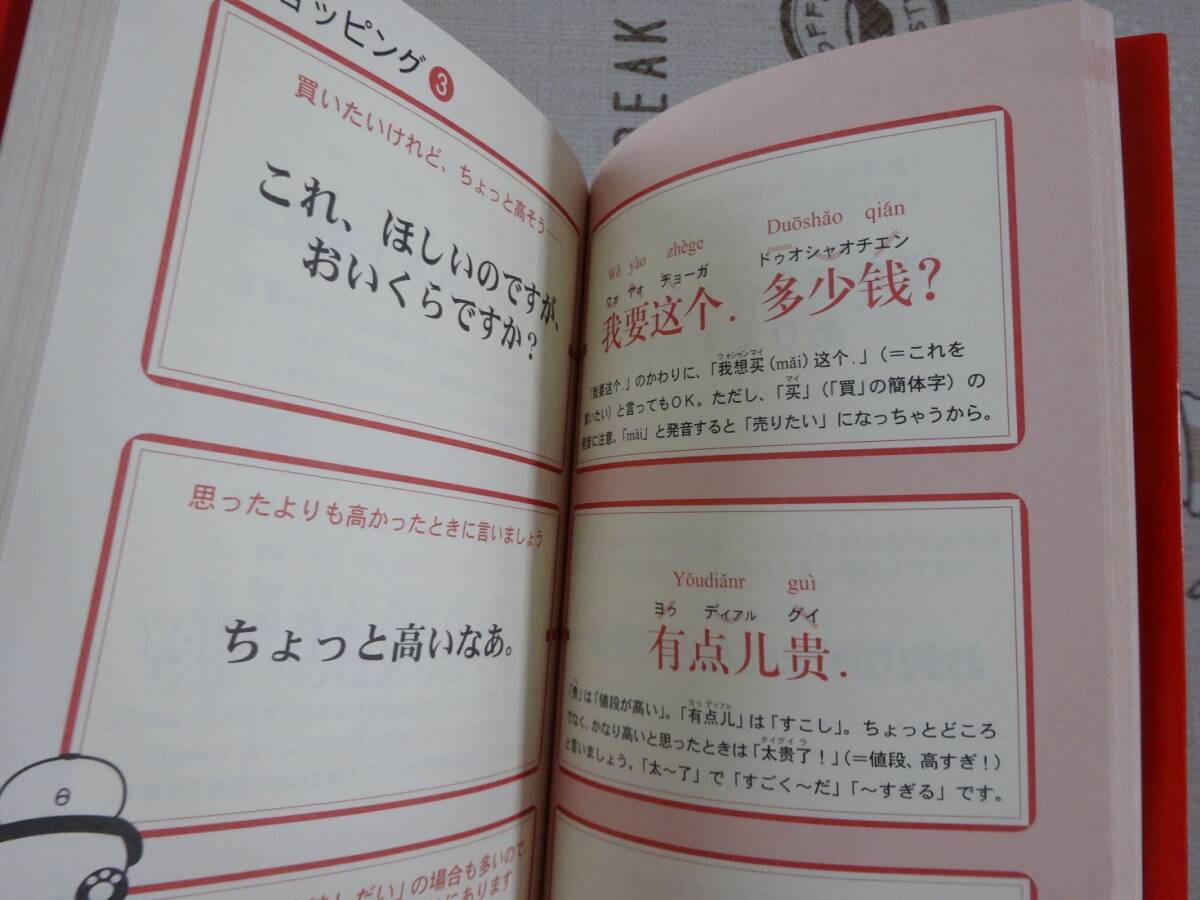 ョッピング 3
買いたいけれど、ちょっと高そう……
これ、ほしいのですが、
おいくらですか？
思ったよりも高かったときに言いましょう
ちょっと高いなあ。
」の場合も多いので、
にあります
Wǒ yào zhège Duōshǎo qián
ウオ ヤオ ヂョーガ ドゥオシャオチエン
我要这个. 多少钱？
ウォシャンマイ
「我要这个.」のかわりに、「我想买(mǎi)这个.」(＝これを
マイ
買いたい) と言ってもOK。ただし、「买」(「買」の簡体字) の
発音に注意。「mài」と発音すると「売りたい」になっちゃうから。
Yǒudiǎnr guì
ヨゥ ディアル グイ
有点儿贵.
ヨゥ ディアル
「贵」は「値段が高い」。「有点儿」は「すこし」。ちょっとどころ
タイグイラ
でなく、かなり高いと思ったときは「太贵了！」(＝値段、高すぎ！)
と言いましょう。「太～了」で「すごく～だ」「～すぎる」です。
REAK